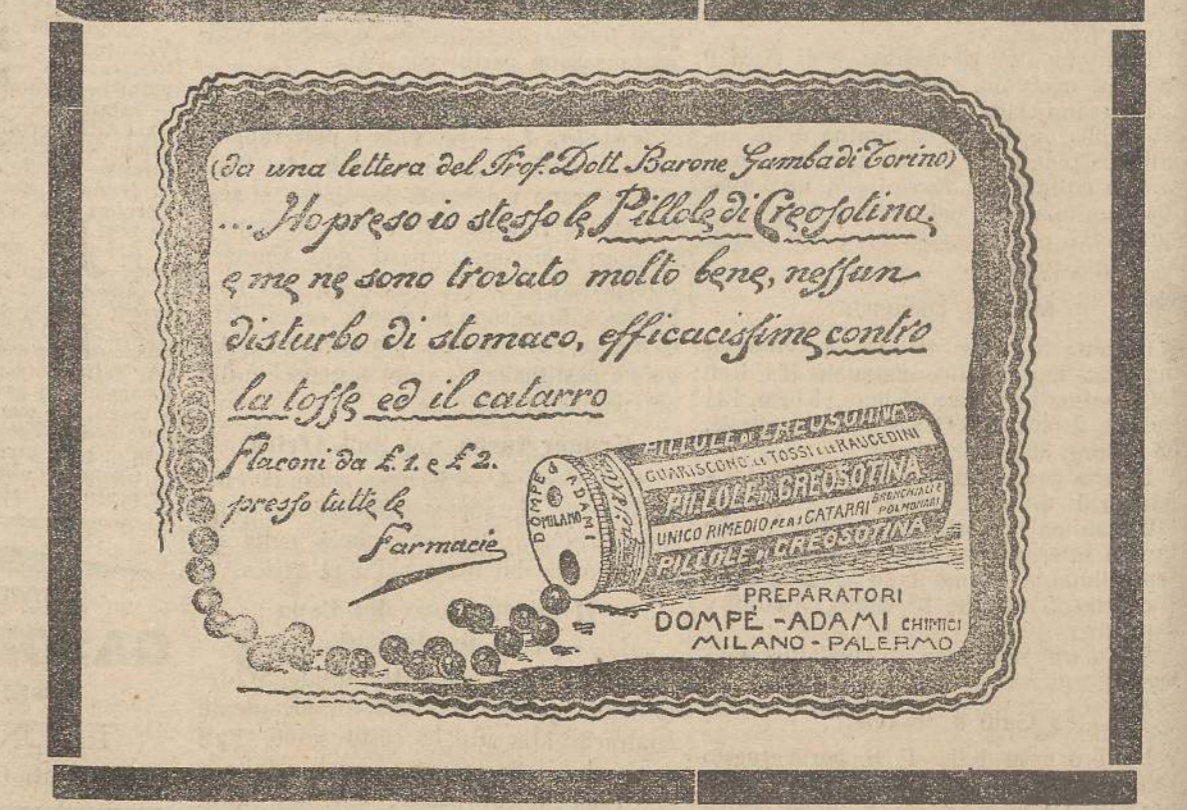 (da una lettera del Prof. Dott. Barone Gamba di Torino)
... Ho preso io stesso le Pillole di Creosotina.
e me ne sono trovato molto bene, nessun
disturbo di stomaco, efficacissime contro
la tosse ed il catarro
Flaconi da £. 1. e £ 2.
presso tutte le
Farmacie
PILLOLE DI CREOSOTINA
GUARISCONO LE TOSSI E LE RAUCEDINI
PILLOLE DI CREOSOTINA
UNICO RIMEDIO PER I CATARRI BRONCHIALI E POLMONARI
PILLOLE DI CREOSOTINA
DOMPÉ ADAMI
MILANO
PREPARATORI
DOMPÉ - ADAMI CHIMICI
MILANO - PALERMO